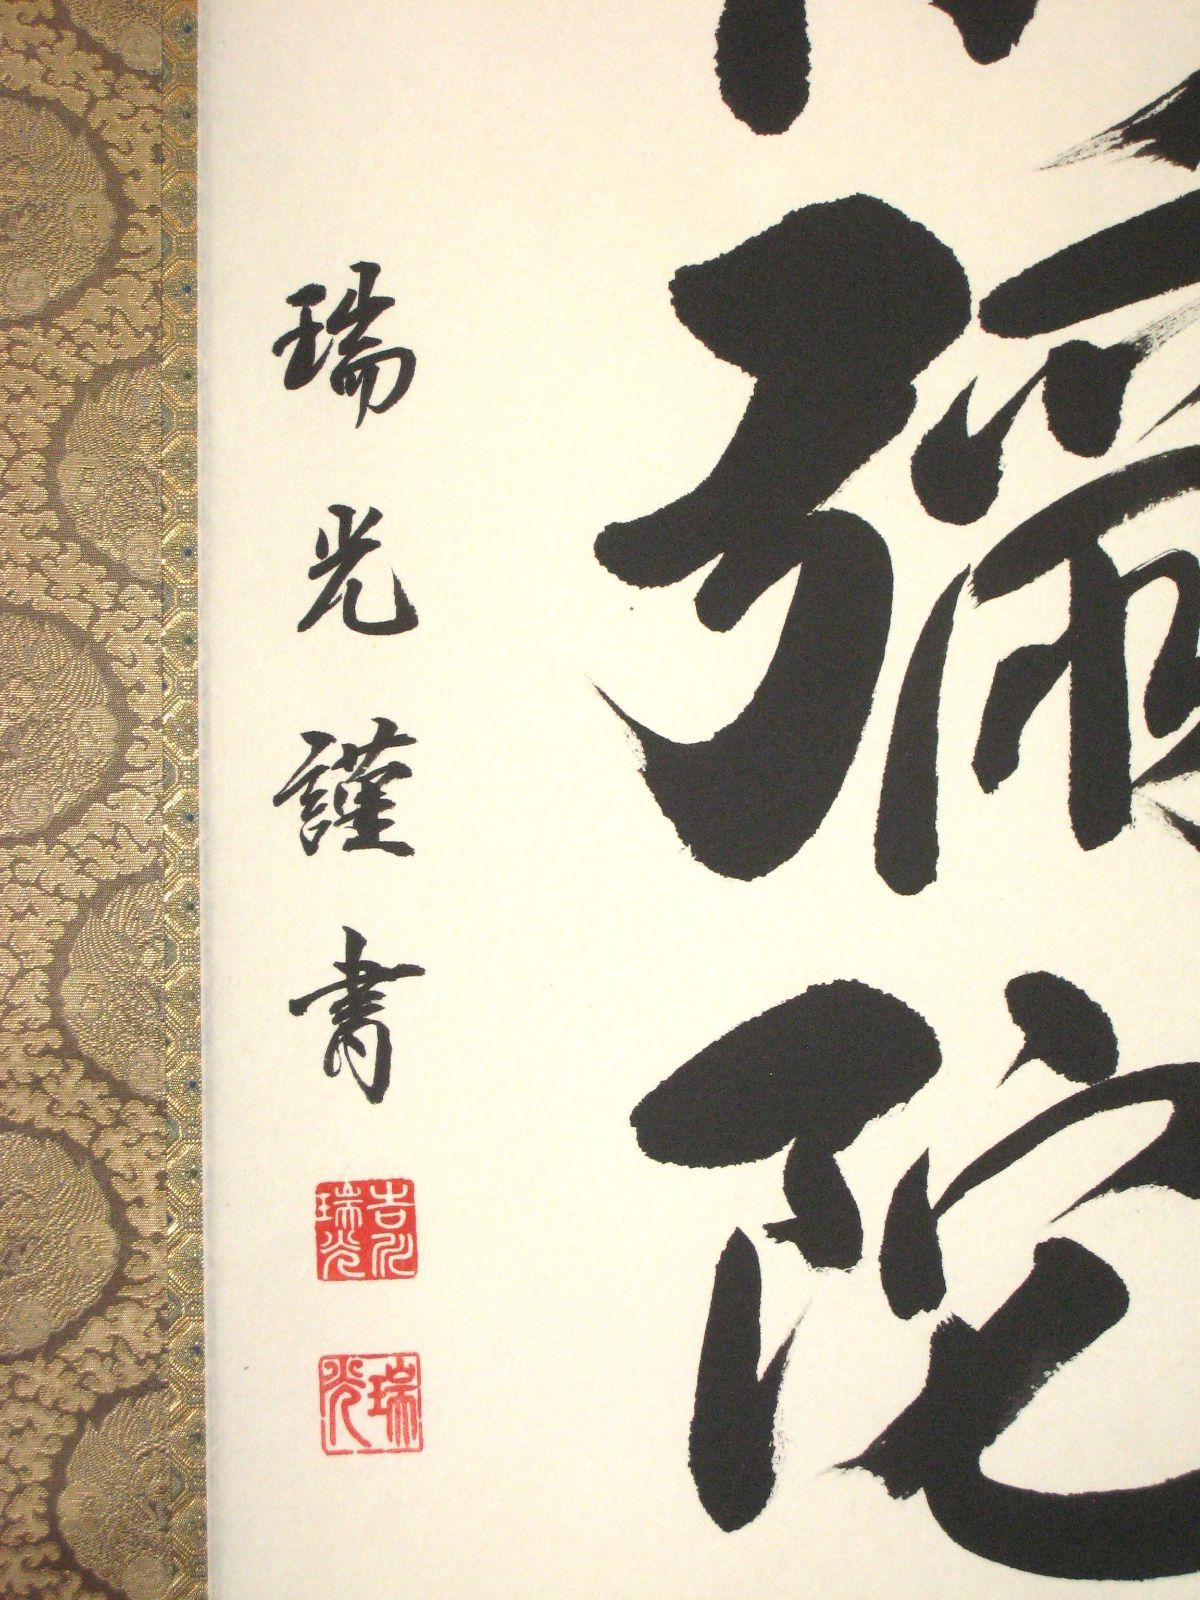 彌陀
瑞光謹書
吉川瑞光
瑞光